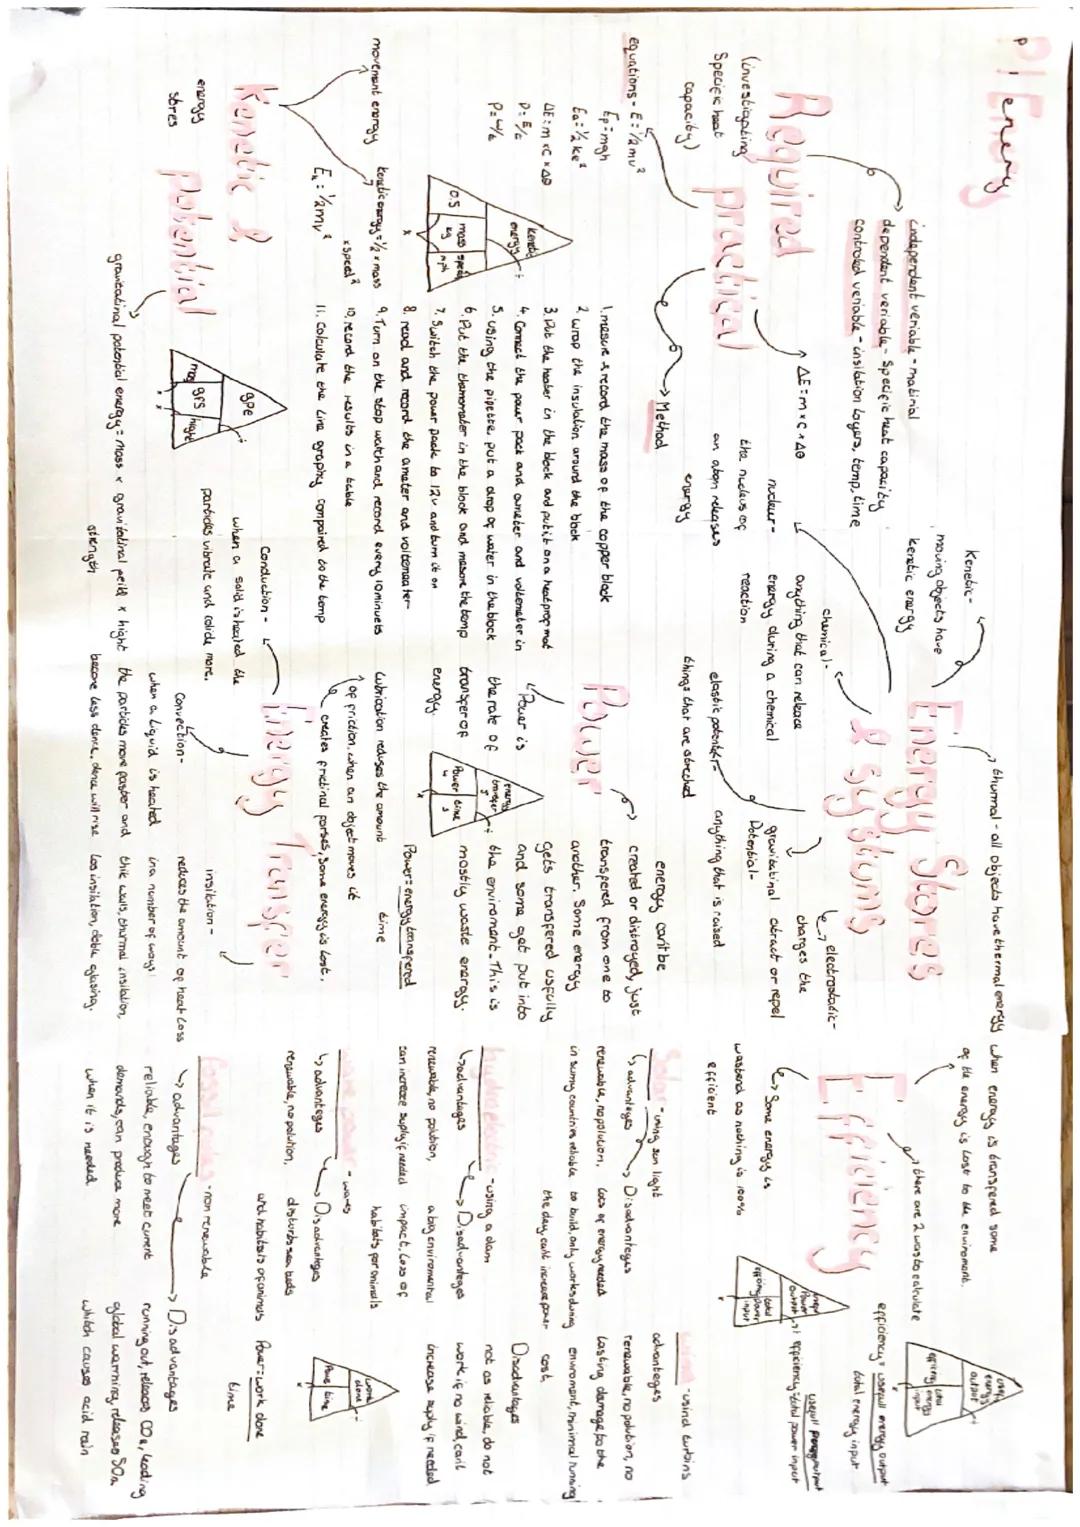 P1 Enery
P energy
Required practical
(investigating
Specific heat
capacity)
independent veriable - matirial
dependent veriable - Specific heat capacity
controled veriable - insilation layers, temp, time
ΔE = m x c x Δθ
equations - E = ½ mv²
Ep = mgh
Ee = ½ ke²
ΔE = m x C x Δθ
P = E/t
P = W/t
→ Method
1. mesure & record the mass of the copper block
2 wrap the insulation around the block
3. Put the heater in the block and put it on a heat prop mat
4. Connect the power pack and ameter and voltometer in
5. using the pipette, put a drop of water in the block
6. Put the thamometer in the block and mesure the temp
7. Switch the power pack to 12v and turn it on
8. read and record the ameter and voltemeater
9. Turn on the stop watch and record every 10 minuets
10. record the results in a table
11. Calculate the line graphy compaired to the temp
Kenetic & Potential
energy
stores
movement energy
kenetic energy = ½ x mass
x speed²
Ek = ½ mv²
kenetic
energy
0.5
mass
kg
speed
mph
x
gpe
mass
gfs
hight
gravitatinal potential energy = mass x gravitatinal feild x hight
strength
Energy Stores
& systiums
Kenetic -
moving objects have
kenetic energy
thurmal - all objects have thermal energy
chemical -
anything that can release
energy during a chemical
reaction
nuclear -
the nucleus of
an atom releases
energy
elastic potential -
things that are streched
gravitatinal
Potential -
anything that is raised
electrostatic -
charges the
atract or repel
Power
Power is
the rate of
transfer of
energy
energy can't be
created or distroyed, just
transfered from one to
another. Some energy
gets transfered usfully
and some get put into
the enviroment. This is
mostly waiste energy.
energy
transfer
J
Power
W
time
s
Power = energy transferd
time
Energy Transfer
lubrication reduses the amount
of friction, when an object moves it
creates frictinal forses, some energy is lost.
Conduction -
when a solid is heated the
particles vibrate and colide more.
Convection -
when a liquid is heated
the particles more faster and
become less dence, dence will rise
insilation -
reduces the amount of heat loss
in a number of ways!
thik walls, thurmal insilation,
loss insilation, doble glasing.
Efficiency
when energy is transfered some
of the energy is lost to the enviroment.
there are 2 ways to calculate
efficiency = usefull energy output
total energy input
efficiency = usefull power output
total power input
Some energy is
wastend as nothing is 100%
efficient
Solar - using sun light
→ advanteges
renewable, no polution,
in sunny countries reliable
→ Disadvanteges
lots of energy needed
to build, only works during
the day, cant increase power
wind - usind turbins
advanteges
renewable, no polution, no
lasting damage to the
enviroment, minimal running
cost,
Disadvanteges
not as reliable, do not
work if no wind, cant
increase suply if needed
hydroeletric - using a dam
→ advantages
renewable, no polution,
can increase suply if needed
→ Disadvanteges
a big enviromental
impact, loss of
habitats for animals
wave power - waves
→ advanteges
renewable, no polution,
→ Disadvanteges
disturbs sea beds
and habitats of animals
work
done
Power
time
Power = work done
time
fossil fules - non renewable
→ advantages
reliable, enough to meet current
demands, can produce more
when it is needed
→ Disadvantages
running out, releases CO2, leading
global warming, releases SO2
which causes acid rain